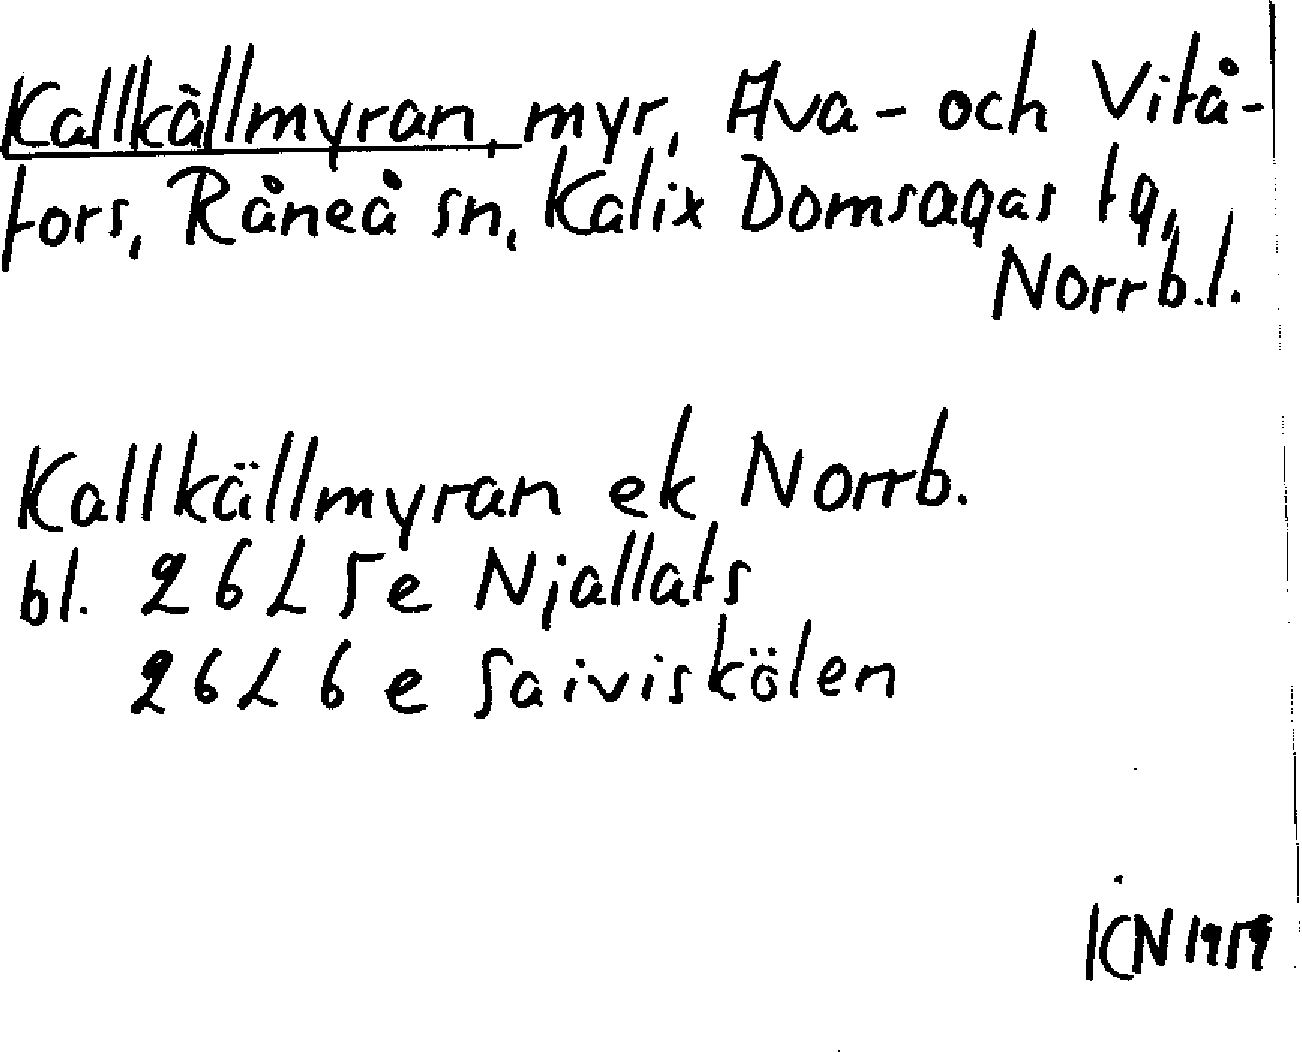 Kallkällmyran, myr, Ava- och Vitå-
fors, Råneå sn, Kalix Domsagas tg,
Norrb.l.
Kallkällmyran ek Norrb.
bl. 26L 5e Njallats
26L 6e Saiviskölen
KN 1959